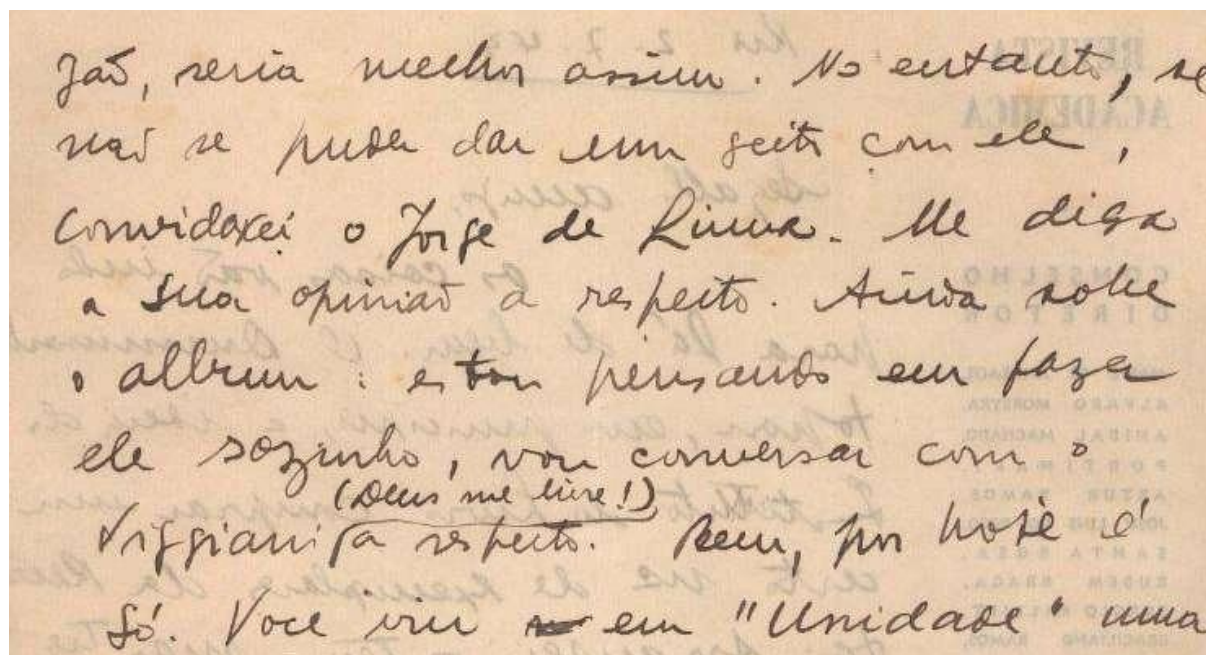 zaõ, seria melhor assim. No entanto, se
naõ se puder dar um geito com ele,
convidarei o Jorge de Lima. Me diga
a sua opiniaõ a respeito. Ainda sobre
o album: estou pensando em fazer
ele sozinho, vou conversar com o
(Deus me livre!)
Viggiani a respeito. Bem, por hoje é
só. Voce viu em "Unidade" uma